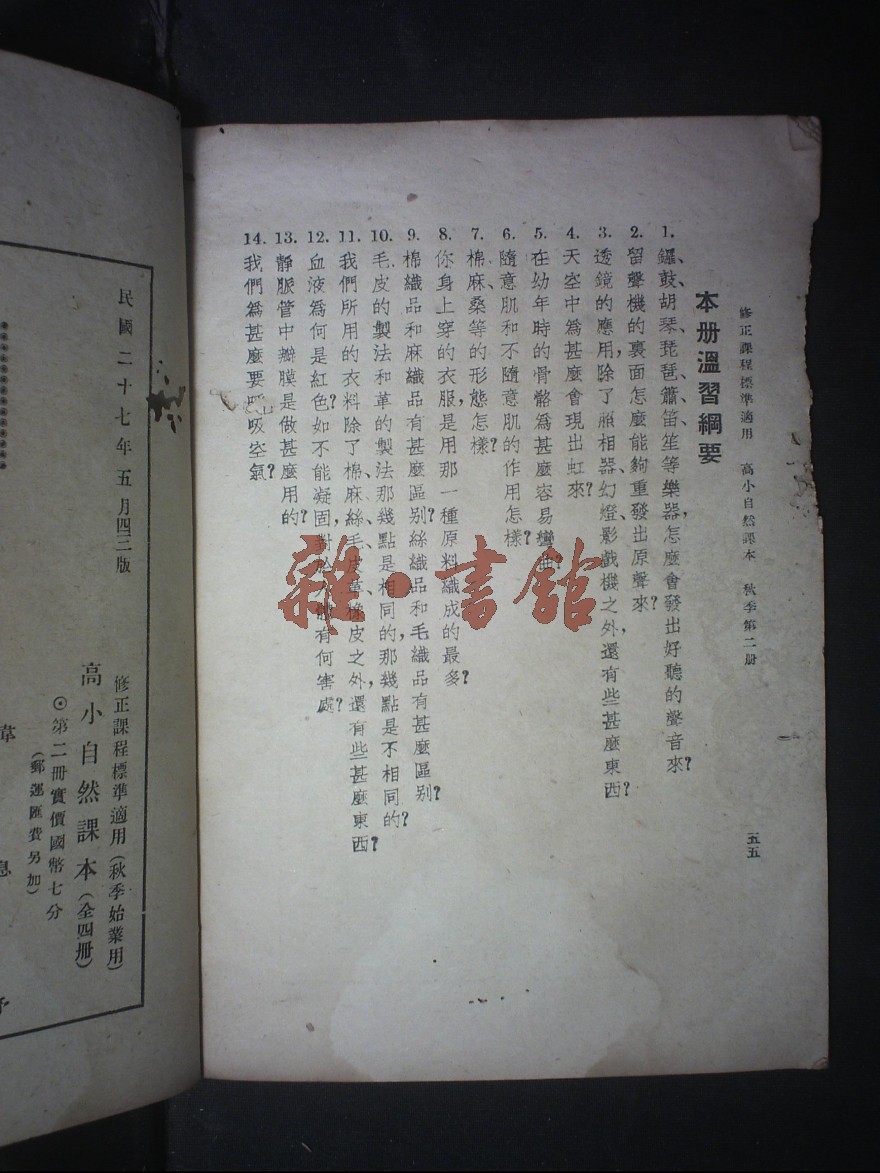 修正課程標準適用　高小自然課本　秋季第二册
五五
本册溫習綱要
1. 鑼、鼓、胡琴、琵琶、簫、笛、笙等樂器,怎麼會發出好聽的聲音來?
2. 留聲機的裏面怎麼能夠重發出原聲來?
3. 透鏡的應用,除了照相器、幻燈、影戲機之外,還有些甚麼東西?
4. 天空中爲甚麼會現出虹來?
5. 在幼年時的骨骼爲甚麼容易彎曲?
6. 隨意肌和不隨意肌的作用怎樣?
7. 棉、麻、桑等的形態怎樣?
8. 你身上穿的衣服,是用那一種原料織成的最多?
9. 棉織品和麻織品有甚麼區別?絲織品和毛織品有甚麼區別?
10. 毛皮的製法和革的製法那幾點是相同的,那幾點是不相同的?
11. 我們所用的衣料除了棉、麻、絲、毛、皮、革、橡皮之外,還有些甚麼東西?
12. 血液爲何是紅色?如不能凝固,對於體有何害處?
13. 靜脈管中瓣膜是做甚麼用的?
14. 我們爲甚麼要吸空氣?
雜·書館
修正課程標準適用(秋季始業用)
高小自然課本(全四册)
⊙第二冊實價國幣七分
(郵運匯費另加)
民國二十七年五月四三版